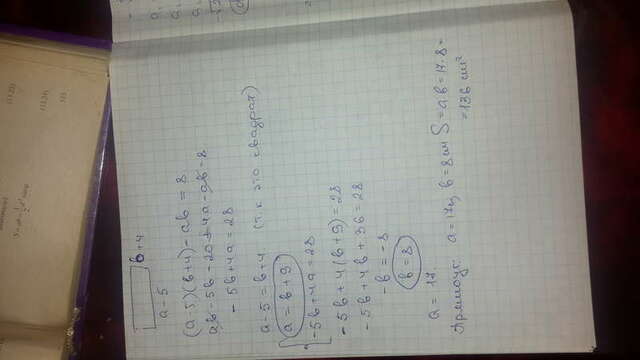 b+4
a-5
(a-5)(b+4)-ab=8
ab-5b-20+4a-ab=8
-5b+4a=28
a-5=b+4 (т.к это квадрат)
a=b+9
-5b+4a=28
-5b+4(b+9)=28
-5b+4b+36=28
-b=-8
b=8
a=17
a=17 b=8 см S=ab=17·8=
=136 см²